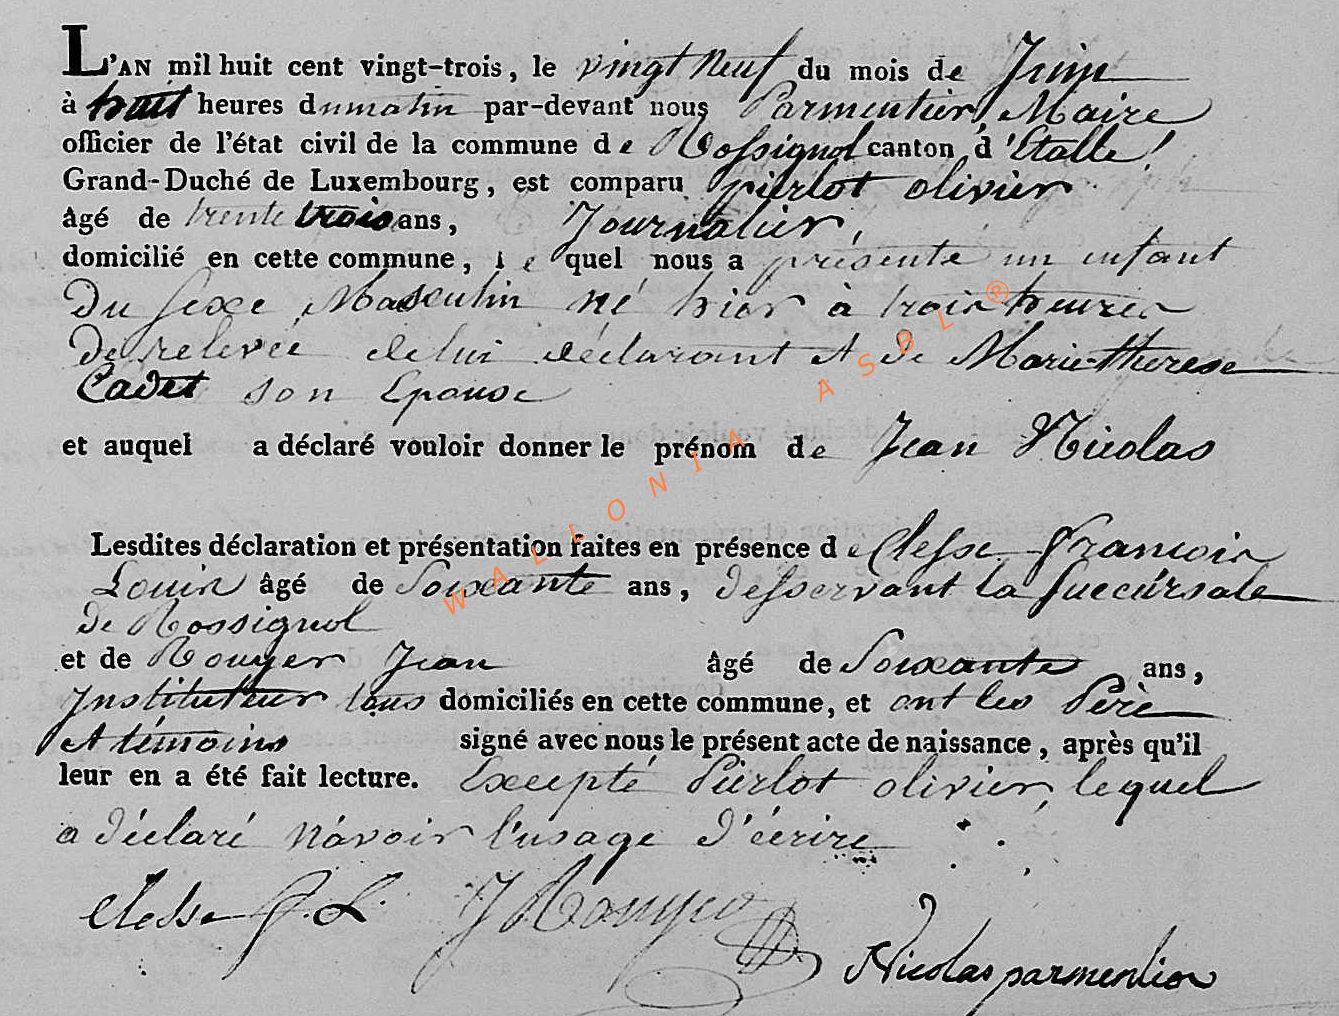 L'AN mil huit cent vingt-trois, le vingt Neuf du mois de Juin
à huit heures du matin par-devant nous Parmentier, Maire
officier de l'état civil de la commune de Rossignol canton d'Etalle,
Grand-Duché de Luxembourg, est comparu pierlot olivier
âgé de trente trois ans, Journalier,
domicilié en cette commune, le quel nous a présenté un enfant
Du sexe Masculin né hier à trois heures
De relevée de lui déclarant et de Marie-therese
Cadet son Epouse
et auquel a déclaré vouloir donner le prénom de Jean Nicolas
Lesdites déclaration et présentation faites en présence de Clesse Francois
Louis âgé de Soixante ans, desservant la Succursale
de Rossignol
et de Rouyer Jean âgé de Soixante ans,
Instituteur tous domiciliés en cette commune, et ont les Père
et témoins signé avec nous le présent acte de naissance, après qu'il
leur en a été fait lecture. Excepté Pierlot olivier, lequel
a déclaré n'avoir l'usage d'écrire
Clesse F. L. J Rouyer
Nicolas parmentier
WALLONIA ASBL ®